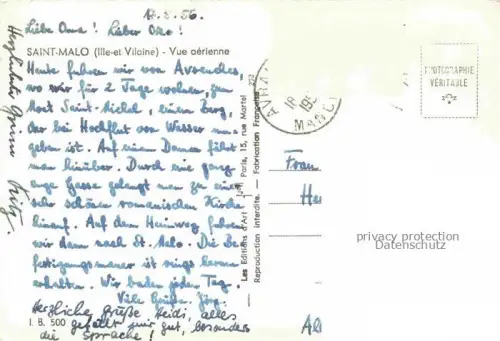 17.8.56.
Liebe Oma! Lieber Otto!
SAINT-MALO (Ille-et Vilaine) - Vue aérienne
Heute fuhren wir von
wo wir für 2 Tage wohnen, zum
Mont Saint-Michel, einem Berg,
der bei Hochflut von Wasser umge-
geben ist. Auf einem Damm fährt
man hinüber. Durch eine ganz
enge Gasse gelangt man zu einer
sehr schönen romanischen Kirche
hinauf. Auf dem Heimweg fuhren
wir dann nach St. Malo. Die Be-
festigungsmauer ist rings herum
erhalten. Wir baden jeden Tag.
Viele Grüße. Jörg.
Herzliche Grüße Heidi, alles
gefällt mir gut, besonders
die Sprache!
I. B. 500
Herzlichste Grüsse
Fritz.
Les Editions d'Art
Paris, 15, rue Martel
Reproduction interdite. - Fabrication Française
AVRA
18
195
MANCH
PHOTOGRAPHIE
VÉRITABLE
Frau
He
privacy protection
Datenschutz
Al